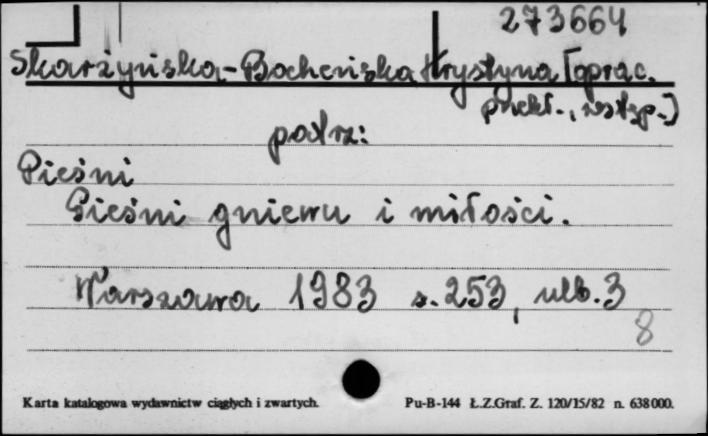 273664
Skarżyńska-Bocheńska Krystyna [oprac.
przekł., wstęp.]
patrz:
Pieśni
Pieśni gniewu i miłości.
Warszawa 1983 s. 253, nlb. 3
8
Karta katalogowa wydawnictw ciągłych i zwartych.
Pu-B-144 Ł.Z.Graf. Z. 120/15/82 n. 638000.